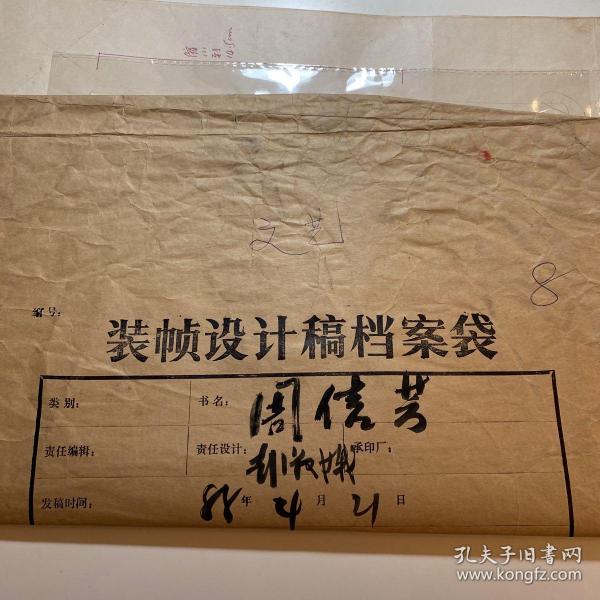 缩小到14.5cm
文艺
8
编号：
装帧设计稿档案袋
类别： 书名：周信芳
责任编辑： 责任设计： 承印厂：
发稿时间： 年 4 月 21 日
孔夫子旧书网
www.kongfz.com